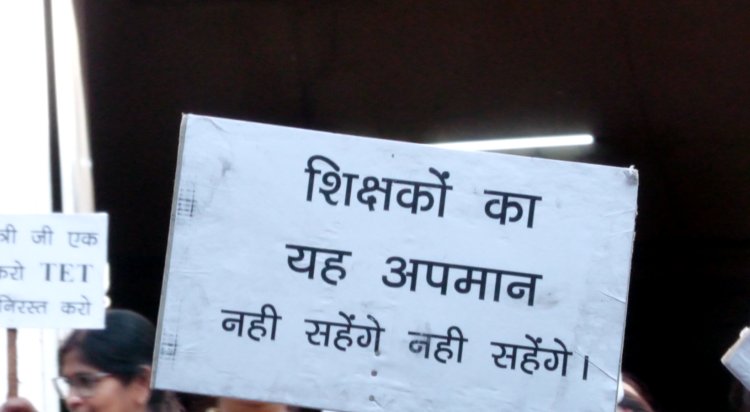 शिक्षकों का
यह अपमान
नही सहेंगे नही सहेंगे।
जी एक
TET
निरस्त करो